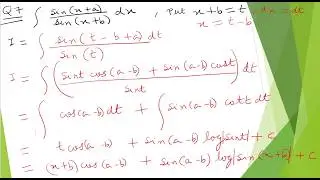 Q7 ∫ sin(x+a)/sin(x+b) dx , put x+b=t, dx=dt
x = t-b
I = ∫ sin(t-b+a)dt / sin(t)
I = ∫ (sint cos(a-b) + sin(a-b) cost / sint) dt
= ∫ cos(a-b)dt + ∫ sin(a-b) cott dt
= t cos(a-b) + sin(a-b) log|sint| + c
= (x+b)cos(a-b) + sin(a-b) log|sin(x+b)| + c